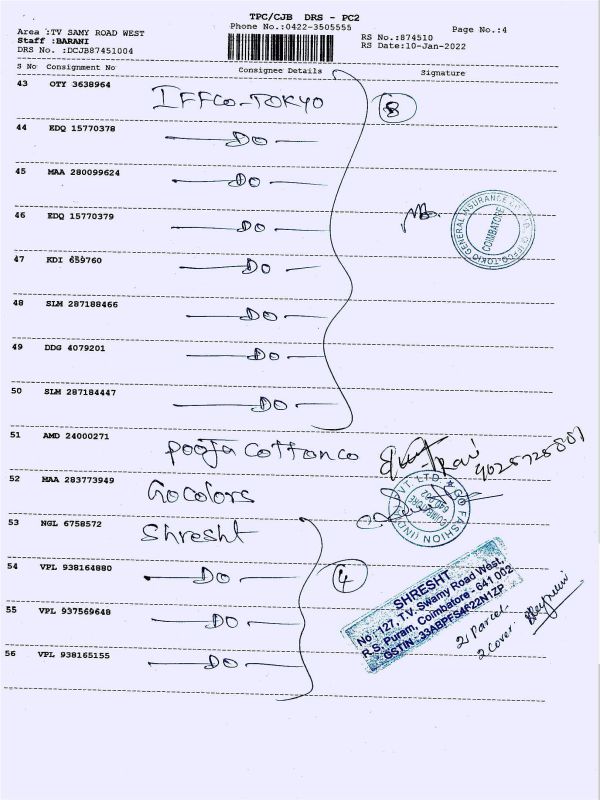 TPC/CJB DRS - PC2
Phone No.:0422-3505555
Page No.:4
Area :TV SAMY ROAD WEST
Staff :BARANI
DRS No. :DCJB87451004
RS No.:874510
RS Date:10-Jan-2022
S No Consignment No Consignee Details Signature
43 OTY 3638964 IFFCO-TOKYO 8
44 EDQ 15770378 DO
45 MAA 280099624 DO
46 EDQ 15770379 DO
47 KDI 659760 DO
48 SLM 287188466 DO
49 DDG 4079201 DO
50 SLM 287184447 DO
COIMBATORE
51 AMD 24000271 Pooja Cottonco
52 MAA 283773949 Go Colors
53 NGL 6758572 Shresht
54 VPL 938164880 DO 4
55 VPL 937569648 DO
56 VPL 938165155 DO
SHRESHT
No :127, T.V. Swamy Road West,
R.S. Puram, Coimbatore - 641 002
2 Parcel
2 Cover